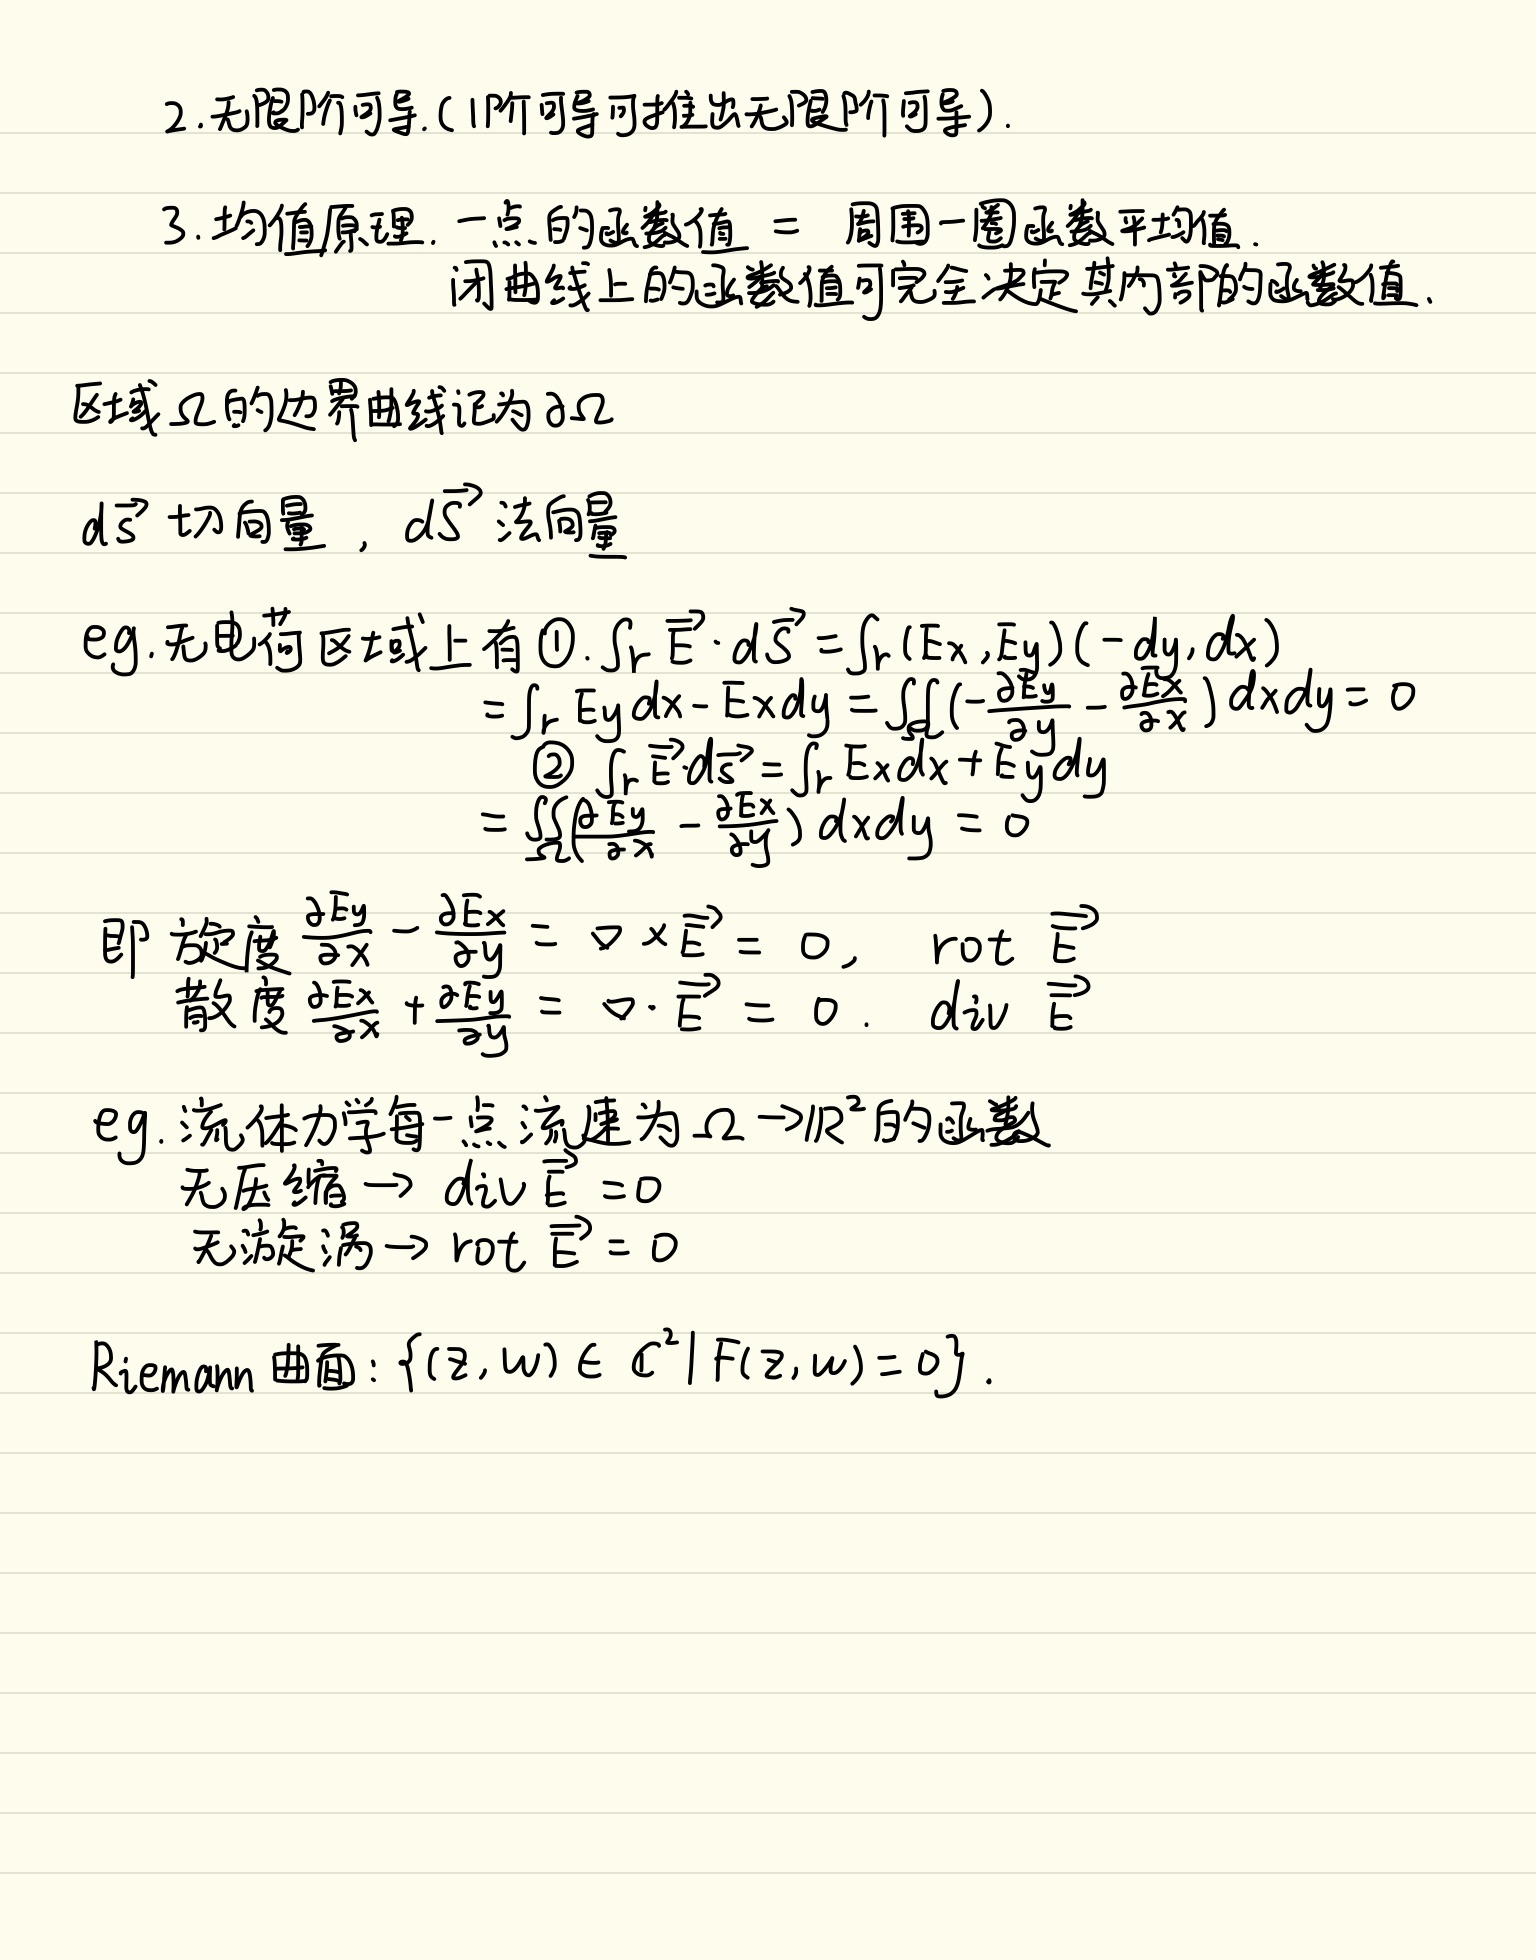 2.无限阶可导.(1阶可导可推出无限阶可导).
3.均值原理. 一点的函数值 = 周围一圈函数平均值.
闭曲线上的函数值可完全决定其内部的函数值.
区域Ω的边界曲线记为∂Ω
d\vec{s} 切向量, d\vec{S} 法向量
eg.无电荷区域上有①.∫_r \vec{E}·d\vec{S} = ∫_r (Ex,Ey)(-dy,dx)
= ∫_r Ey dx - Ex dy = ∬_Ω (-\frac{∂Ey}{∂y} - \frac{∂Ex}{∂x}) dxdy = 0
② ∫_r \vec{E}·d\vec{s} = ∫_r Ex dx + Ey dy
= ∬_Ω (\frac{∂Ey}{∂x} - \frac{∂Ex}{∂y}) dxdy = 0
即 旋度 \frac{∂Ey}{∂x} - \frac{∂Ex}{∂y} = ▽ × \vec{E} = 0, rot \vec{E}
散度 \frac{∂Ex}{∂x} + \frac{∂Ey}{∂y} = ▽· \vec{E} = 0. div \vec{E}
eg.流体力学每一点流速为Ω→ℝ²的函数
无压缩→ div \vec{E} = 0
无漩涡→ rot \vec{E} = 0
Riemann 曲面: {(z,w) ∈ ℂ² | F(z,w) = 0}.